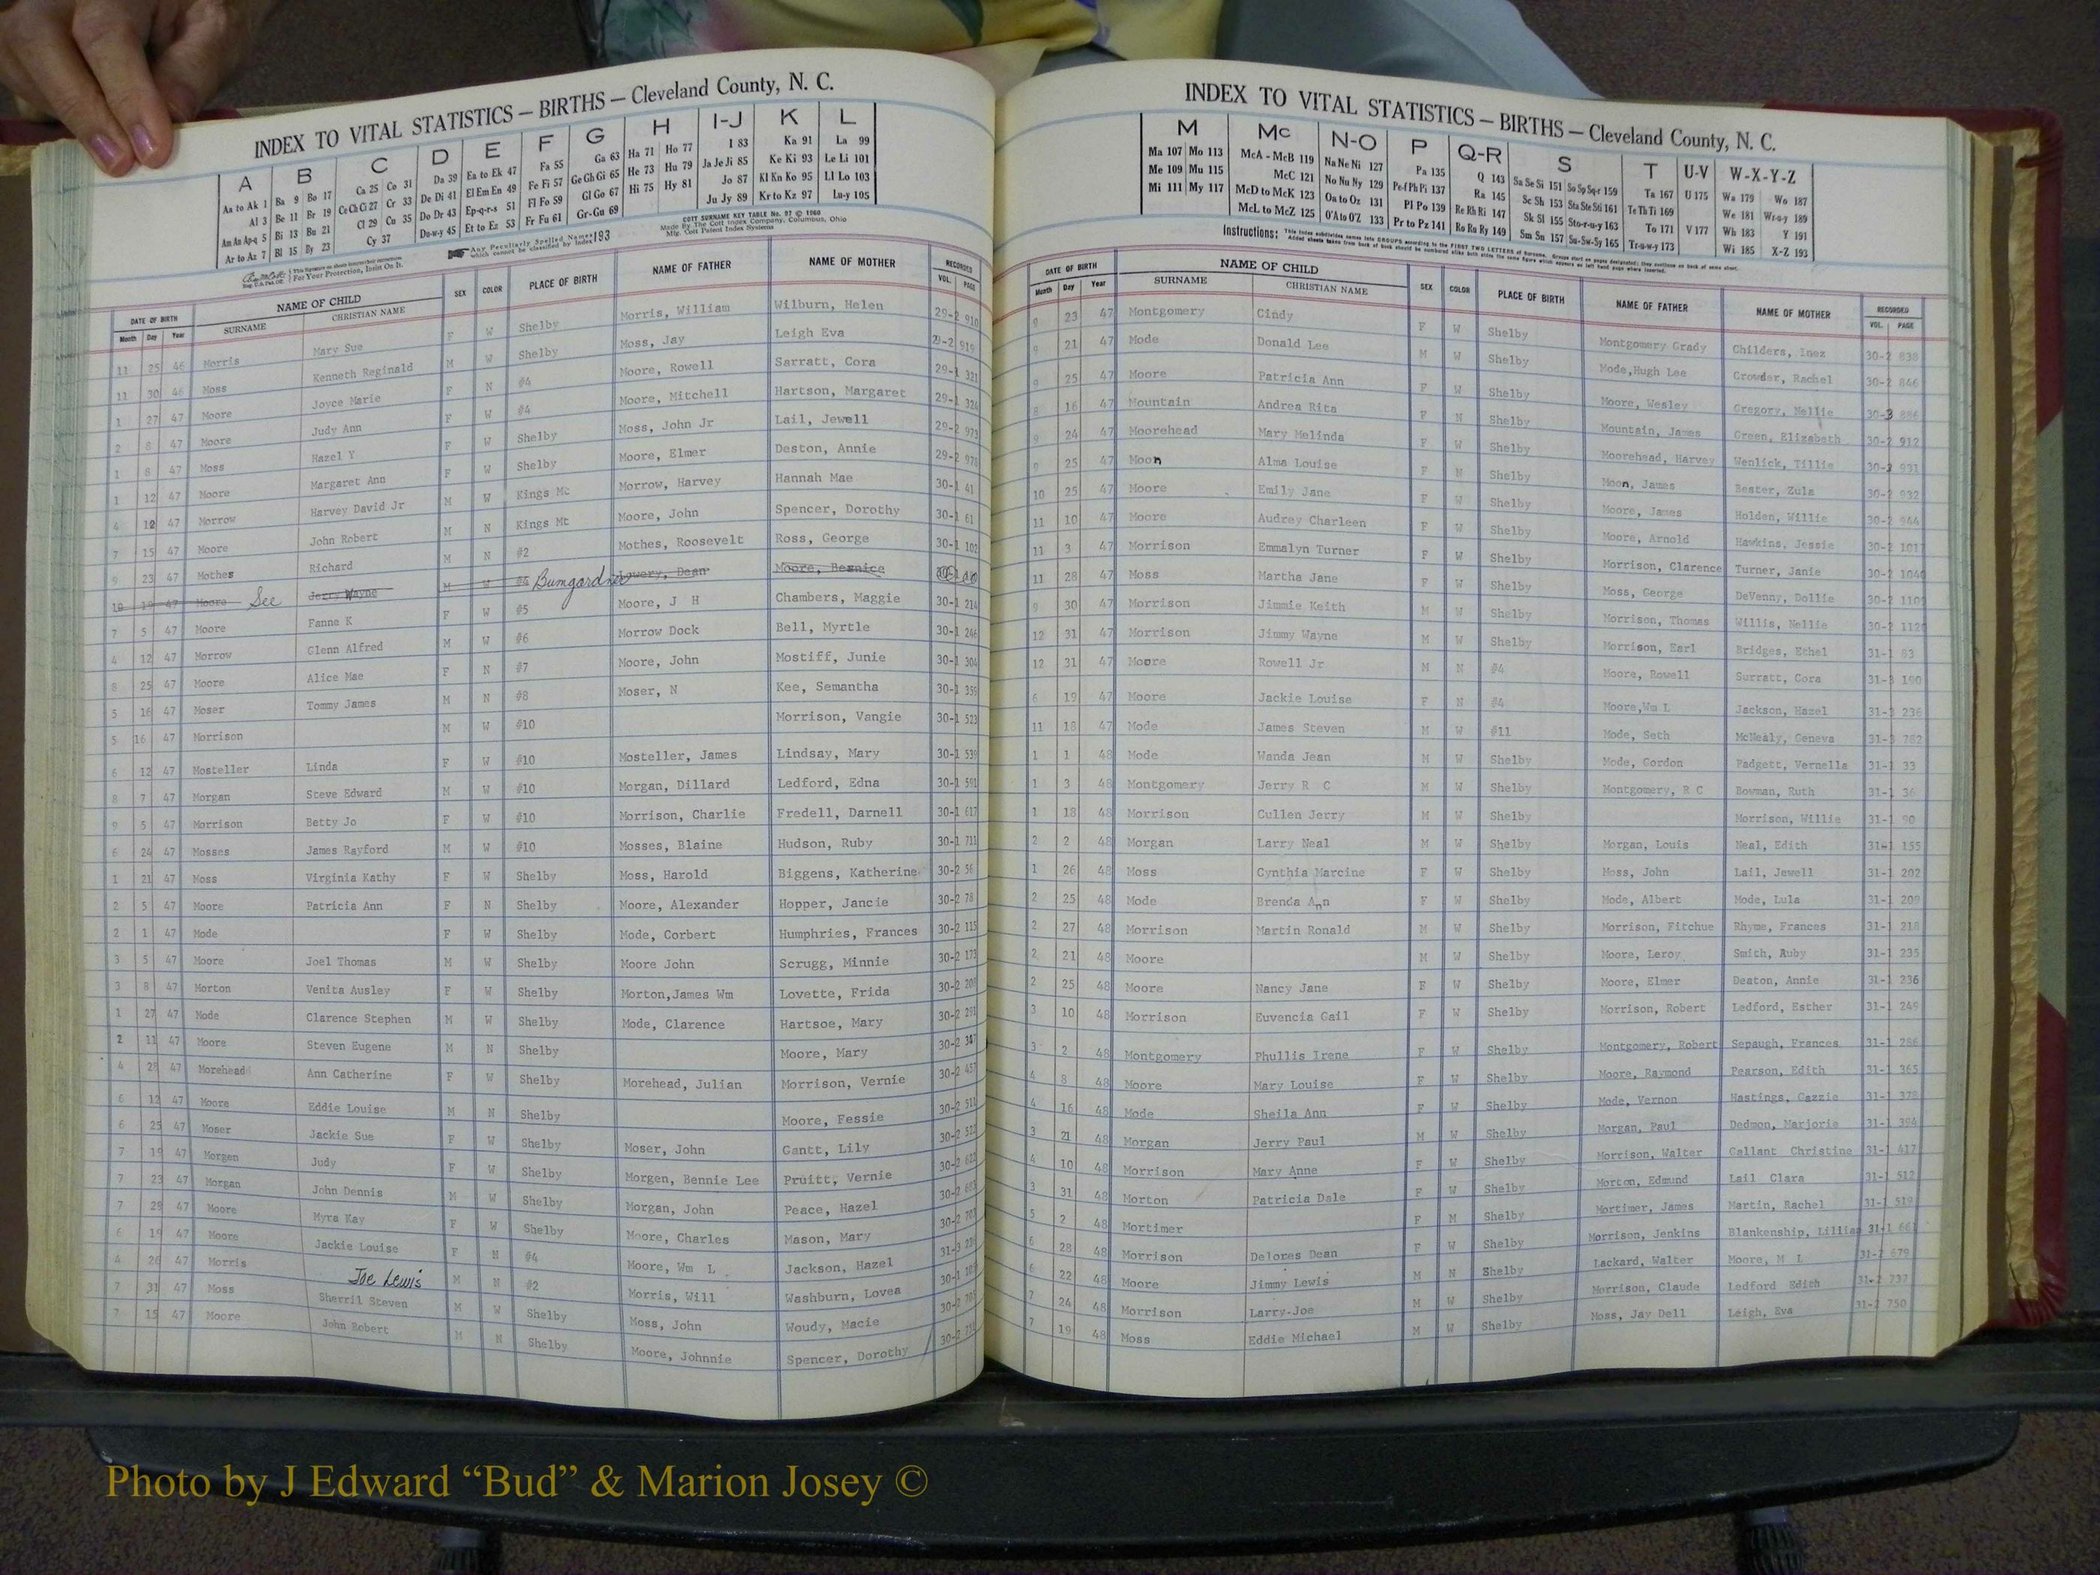 INDEX TO VITAL STATISTICS — BIRTHS — Cleveland County, N. C.
A B C D E F G H I-J K L
Aa to Ak 1 Ba 9 Bo 17 Ca 25 Co 31 Da 39 Ea to Ek 47 Fa 55 Ga 63 Ha 71 Ho 77 I 83 Ka 91 La 99
Al 3 Be 11 Br 19 Ce Ch Ci 27 Cr 33 De Di 41 El Em En 49 Fe Fi 57 Ge Gh Gi 65 He 73 Hu 79 Ja Je Ji 85 Ke Ki 93 Le Li 101
Am An Ap-q 5 Bi 13 Bu 21 Cl 29 Cu 35 Do Dr 43 Ep-q-r-s 51 Fl Fo 59 Gl Go 67 Hi 75 Hy 81 Jo 87 Kl Kn Ko 95 Ll Lo 103
Ar to Az 7 Bl 15 By 23 Cy 37 Du-w-y 45 Et to Ez 53 Fr Fu 61 Gr-Gu 69 Ju Jy 89 Kr to Kz 97 Lu-y 105
COTT SURNAME KEY TABLE No. 97 © 1960
Made By The Cott Index Company, Columbus, Ohio
Mfg. Cott Patent Index Systems
Any Peculiarly Spelled Names which cannot be classified by Index 193
For Your Protection, Insist On It.
DATE OF BIRTH NAME OF CHILD SEX COLOR PLACE OF BIRTH NAME OF FATHER NAME OF MOTHER RECORDED
Month Day Year SURNAME CHRISTIAN NAME VOL. PAGE
11 25 46 Morris Mary Sue F W Shelby Morris, William Wilburn, Helen 29-2 910
11 30 46 Moss Kenneth Reginald M W Shelby Moss, Jay Leigh Eva 29-2 919
1 27 47 Moore Joyce Marie F N #4 Moore, Rowell Sarratt, Cora 29-1 321
2 8 47 Moore Judy Ann F W #4 Moore, Mitchell Hartson, Margaret 29-1 324
1 8 47 Moss Hazel Y F W Shelby Moss, John Jr Lail, Jewell 29-2 973
1 12 47 Moore Margaret Ann F W Shelby Moore, Elmer Deston, Annie 29-2 978
4 12 47 Morrow Harvey David Jr M W Kings Mt Morrow, Harvey Hannah Mae 30-1 41
7 15 47 Moore John Robert M N Kings Mt Moore, John Spencer, Dorothy 30-1 61
9 23 47 Mothes Richard M N #2 Mothes, Roosevelt Ross, George 30-1 102
10 19 47 Moore See Jerry Wayne M W #4 Bumgardner Lowery, Dean Moore, Besnice
7 5 47 Moore Fanne K F W #5 Moore, J H Chambers, Maggie 30-1 214
4 12 47 Morrow Glenn Alfred M W #6 Morrow Dock Bell, Myrtle 30-1 246
8 25 47 Moore Alice Mae F N #7 Moore, John Mostiff, Junie 30-1 304
5 16 47 Moser Tommy James M N #8 Moser, N Kee, Semantha 30-1 359
5 16 47 Morrison M W #10 Morrison, Vangie 30-1 523
6 12 47 Mosteller Linda F W #10 Mosteller, James Lindsay, Mary 30-1 539
8 7 47 Morgan Steve Edward M W #10 Morgan, Dillard Ledford, Edna 30-1 591
9 5 47 Morrison Betty Jo F W #10 Morrison, Charlie Fredell, Darnell 30-1 617
6 24 47 Mosses James Rayford M W #10 Mosses, Blaine Hudson, Ruby 30-1 711
1 21 47 Moss Virginia Kathy F W Shelby Moss, Harold Biggens, Katherine 30-2 56
2 5 47 Moore Patricia Ann F N Shelby Moore, Alexander Hopper, Jancie 30-2 78
2 1 47 Mode F W Shelby Mode, Corbert Humphries, Frances 30-2 115
3 5 47 Moore Joel Thomas M W Shelby Moore John Scrugg, Minnie 30-2 173
3 8 47 Morton Venita Ausley F W Shelby Morton,James Wm Lovette, Frida 30-2
1 27 47 Mode Clarence Stephen M W Shelby Mode, Clarence Hartsoe, Mary 30-2 291
2 11 47 Moore Steven Eugene M N Shelby Moore, Mary 30-2 347
4 28 47 Morehead Ann Catherine F W Shelby Morehead, Julian Morrison, Vernie 30-2 457
6 12 47 Moore Eddie Louise M N Shelby Moore, Fessie 30-2 511
6 25 47 Moser Jackie Sue F W Shelby Moser, John Gantt, Lily 30-2 522
7 19 47 Morgen Judy F W Shelby Morgen, Bennie Lee Pruitt, Vernie 30-2 622
7 23 47 Morgan John Dennis M W Shelby Morgan, John Peace, Hazel 30-2
7 29 47 Moore Myra Kay F W Shelby Moore, Charles Mason, Mary 30-2
6 19 47 Moore Jackie Louise F N #4 Moore, Wm L Jackson, Hazel 31-3
4 26 47 Morris Joe Lewis M N #2 Morris, Will Washburn, Lovea 30-1
7 31 47 Moss Sherril Steven M W Shelby Moss, John Woudy, Macie 30-2
7 15 47 Moore John Robert M N Shelby Moore, Johnnie Spencer, Dorothy 30-2
INDEX TO VITAL STATISTICS — BIRTHS — Cleveland County, N. C.
M Mc N-O P Q-R S T U-V W-X-Y-Z
Ma 107 Mo 113 McA - McB 119 Na Ne Ni 127 Pa 135 Q 143 Sa Se Si 151 So Sp Sq-r 159 Ta 167 U 175 Wa 179 Wo 187
Me 109 Mu 115 McC 121 No Nu Ny 129 Pe-f Ph Pi 137 Ra 145 Sc Sh 153 Sta Ste Sti 161 Te Th Ti 169 We 181 Wr-u-y 189
Mi 111 My 117 McD to McK 123 Oa to Oz 131 Pl Po 139 Re Rh Ri 147 Sk Sl 155 Sto-r-u-y 163 To 171 V 177 Wh 183 Y 191
McL to McZ 125 O'A to O'Z 133 Pr to Pz 141 Ro Ru Ry 149 Sm Sn 157 Su-Sw-Sy 165 Tr-u-w-y 173 Wi 185 X-Z 193
Instructions: This index subdivides names into GROUPS according to the FIRST TWO LETTERS of Surname. Groups start on pages designated; they continue on back of same sheet.
Added sheets taken from back of book should be numbered alike both sides the same figure which appears on left hand page where inserted.
DATE OF BIRTH NAME OF CHILD SEX COLOR PLACE OF BIRTH NAME OF FATHER NAME OF MOTHER RECORDED
Month Day Year SURNAME CHRISTIAN NAME VOL. PAGE
9 23 47 Montgomery Cindy F W Shelby Montgomery Grady Childers, Inez 30-2 838
9 21 47 Mode Donald Lee M W Shelby Mode,Hugh Lee Crowder, Rachel 30-2 846
9 25 47 Moore Patricia Ann F W Shelby Moore, Wesley Gregory, Nellie 30-3 886
8 16 47 Mountain Andrea Rita F N Shelby Mountain, James Green, Elizabeth 30-2 912
9 24 47 Moorehead Mary Melinda F W Shelby Moorehead, Harvey Wenlick, Tillie 30-3 931
9 25 47 Moon Alma Louise F N Shelby Moon, James Bester, Zula 30-2 932
10 25 47 Moore Emily Jane F W Shelby Moore, James Holden, Willie 30-2 944
11 10 47 Moore Audrey Charleen F W Shelby Moore, Arnold Hawkins, Jessie 30-2 1017
11 3 47 Morrison Emmalyn Turner F W Shelby Morrison, Clarence Turner, Janie 30-2 1040
11 28 47 Moss Martha Jane F W Shelby Moss, George DeVenny, Dollie 30-2 1109
9 30 47 Morrison Jimmie Keith M W Shelby Morrison, Thomas Willis, Nellie 30-2 1120
12 31 47 Morrison Jimmy Wayne M W Shelby Morrison, Earl Bridges, Ethel 31-1 83
12 31 47 Moore Rowell Jr M N #4 Moore, Rowell Surratt, Cora 31-3 190
6 19 47 Moore Jackie Louise F N #4 Moore,Wm L Jackson, Hazel 31-3 236
11 18 47 Mode James Steven M W #11 Mode, Seth McNealy, Geneva 31-3 782
1 1 48 Mode Wanda Jean M W Shelby Mode, Gordon Padgett, Vernella 31-1 33
1 3 48 Montgomery Jerry R C M W Shelby Montgomery, R C Bowman, Ruth 31-1 36
1 18 48 Morrison Cullen Jerry M W Shelby Morrison, Willie 31-1 90
2 2 48 Morgan Larry Neal M W Shelby Morgan, Louis Neal, Edith 31-1 155
1 26 48 Moss Cynthia Marcine F W Shelby Moss, John Lail, Jewell 31-1 202
2 25 48 Mode Brenda Ann F W Shelby Mode, Albert Mode, Lula 31-1 209
2 27 48 Morrison Martin Ronald M W Shelby Morrison, Fitchue Rhyme, Frances 31-1 218
2 21 48 Moore M W Shelby Moore, Leroy Smith, Ruby 31-1 235
2 25 48 Moore Nancy Jane F W Shelby Moore, Elmer Deaton, Annie 31-1 236
3 10 48 Morrison Euvencia Gail F W Shelby Morrison, Robert Ledford, Esther 31-1 249
3 2 48 Montgomery Phullis Irene F W Shelby Montgomery, Robert Sepaugh, Frances 31-1 286
4 8 48 Moore Mary Louise F W Shelby Moore, Raymond Pearson, Edith 31-1 365
4 16 48 Mode Sheila Ann F W Shelby Mode, Vernon Hastings, Cazzie 31-1 378
3 21 48 Morgan Jerry Paul M W Shelby Morgan, Paul Dedmon, Marjorie 31-1 394
4 10 48 Morrison Mary Anne F W Shelby Morrison, Walter Gallant Christine 31-1 417
3 31 48 Morton Patricia Dale F W Shelby Morton, Edmund Lail Clara 31-1 512
5 2 48 Mortimer F M Shelby Mortimer, James Martin, Rachel 31-1 519
6 28 48 Morrison Delores Dean F W Shelby Morrison, Jenkins Blankenship, Lillian 31-1 661
6 22 48 Moore Jimmy Lewis M N Shelby Lackard, Walter Moore, M L 31-2 679
7 24 48 Morrison Larry-Joe M W Shelby Morrison, Claude Ledford Edith 31-2 737
7 19 48 Moss Eddie Michael M W Shelby Moss, Jay Dell Leigh, Eva 31-2 750
Photo by J Edward “Bud” & Marion Josey ©